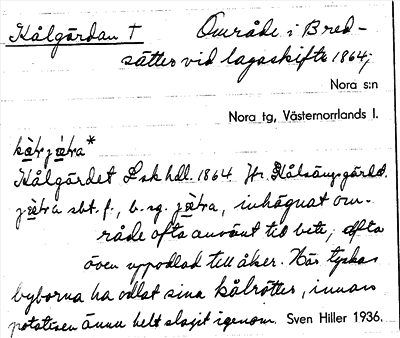 Kålgärdan † Område i Bred-
sätter vid lagaskifte 1864;
Nora s:n
Nora tg, Västernorrlands l.
Kålgärdet Lskhdl. 1864 Jfr. Kålsängsgärdet.
sbt. f., b. sg. inhägnat om-
råde ofta använt till bete; ofta
även uppodlad till åker. Här tyckas
byborna ha odlat sina kålrötter, innan
potatisen ännu helt slagit igenom. Sven Hiller 1936.